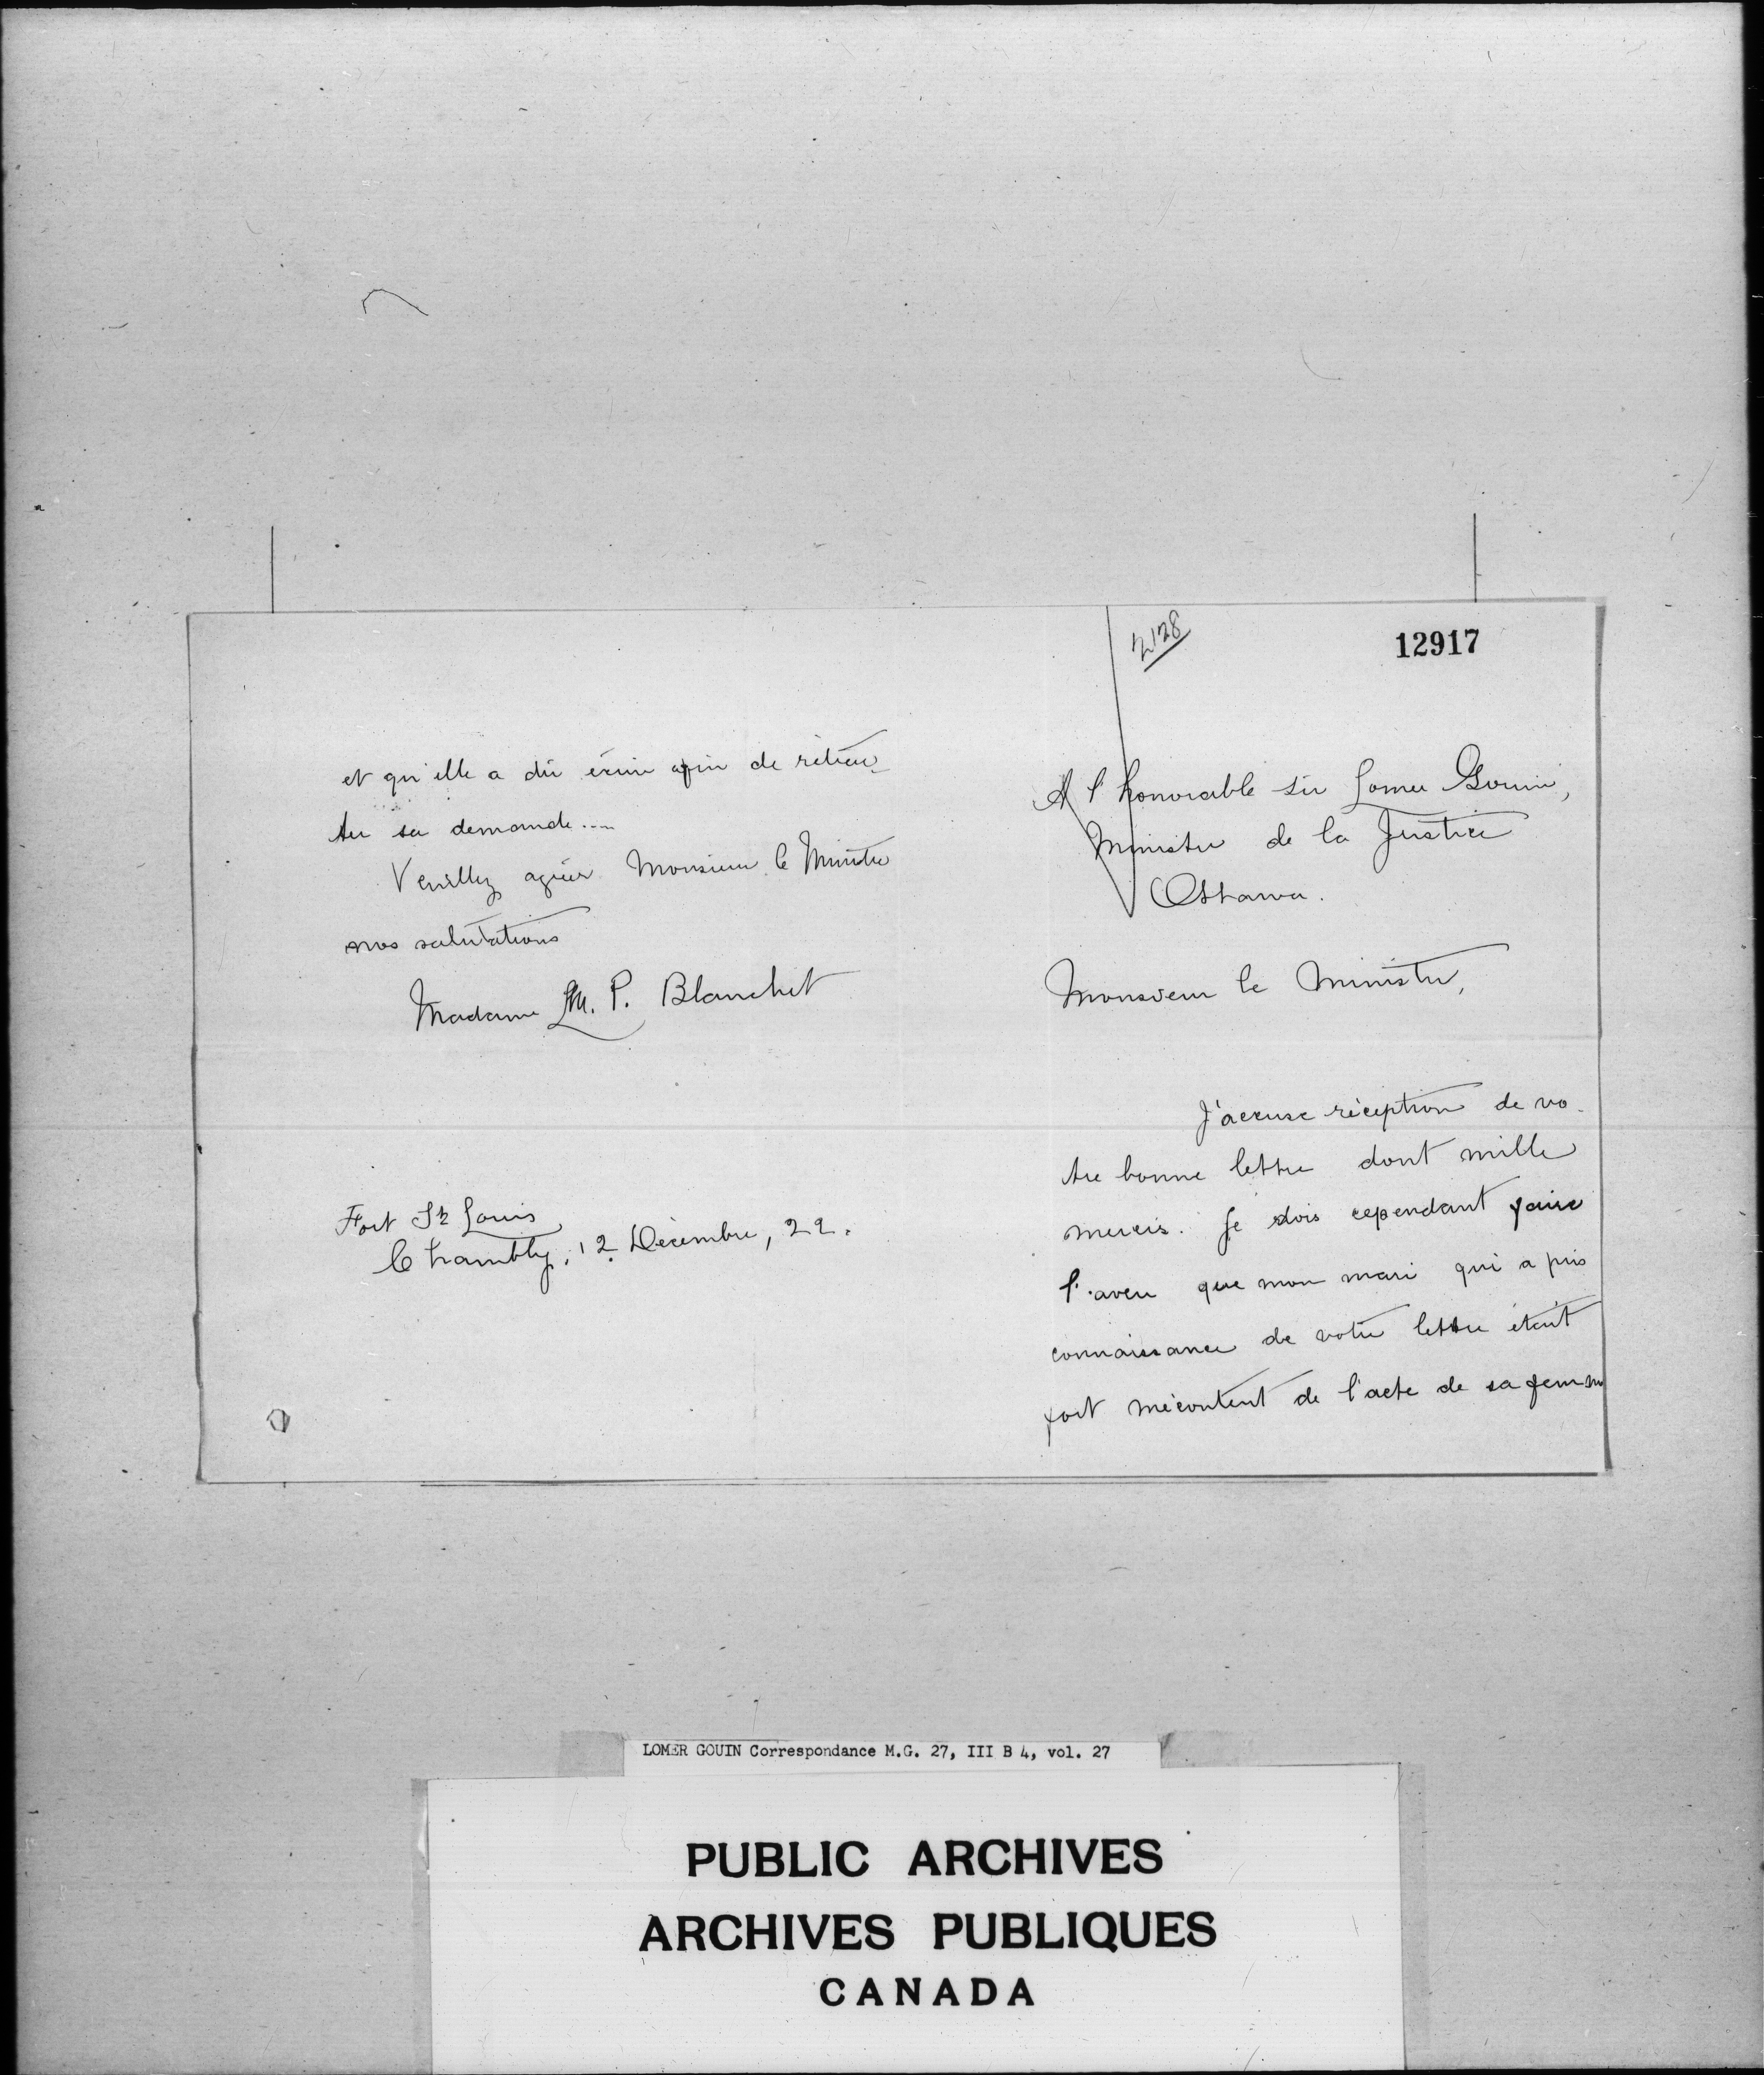 2128
12917
A l'honorable Sir Lomer Gouin,
Ministre de la Justice
Ottawa.
Monsieur le Ministre,
J'accuse réception de vo-
tre bonne lettre dont mille
mercis. Je dois cependant faire
l'aveu que mon mari qui a pris
connaissance de votre lettre était
fort mécontent de l'acte de sa femme
et qu'elle a dû écrire afin de rétrac-
ter sa demande....
Veuillez agréer Monsieur le Ministre
nos salutations
Madame M. P. Blanchet
Fort St Louis
Chambly, 12 Décembre, 22.
LOMER GOUIN Correspondance M.G. 27, III B 4, vol. 27
PUBLIC ARCHIVES
ARCHIVES PUBLIQUES
CANADA